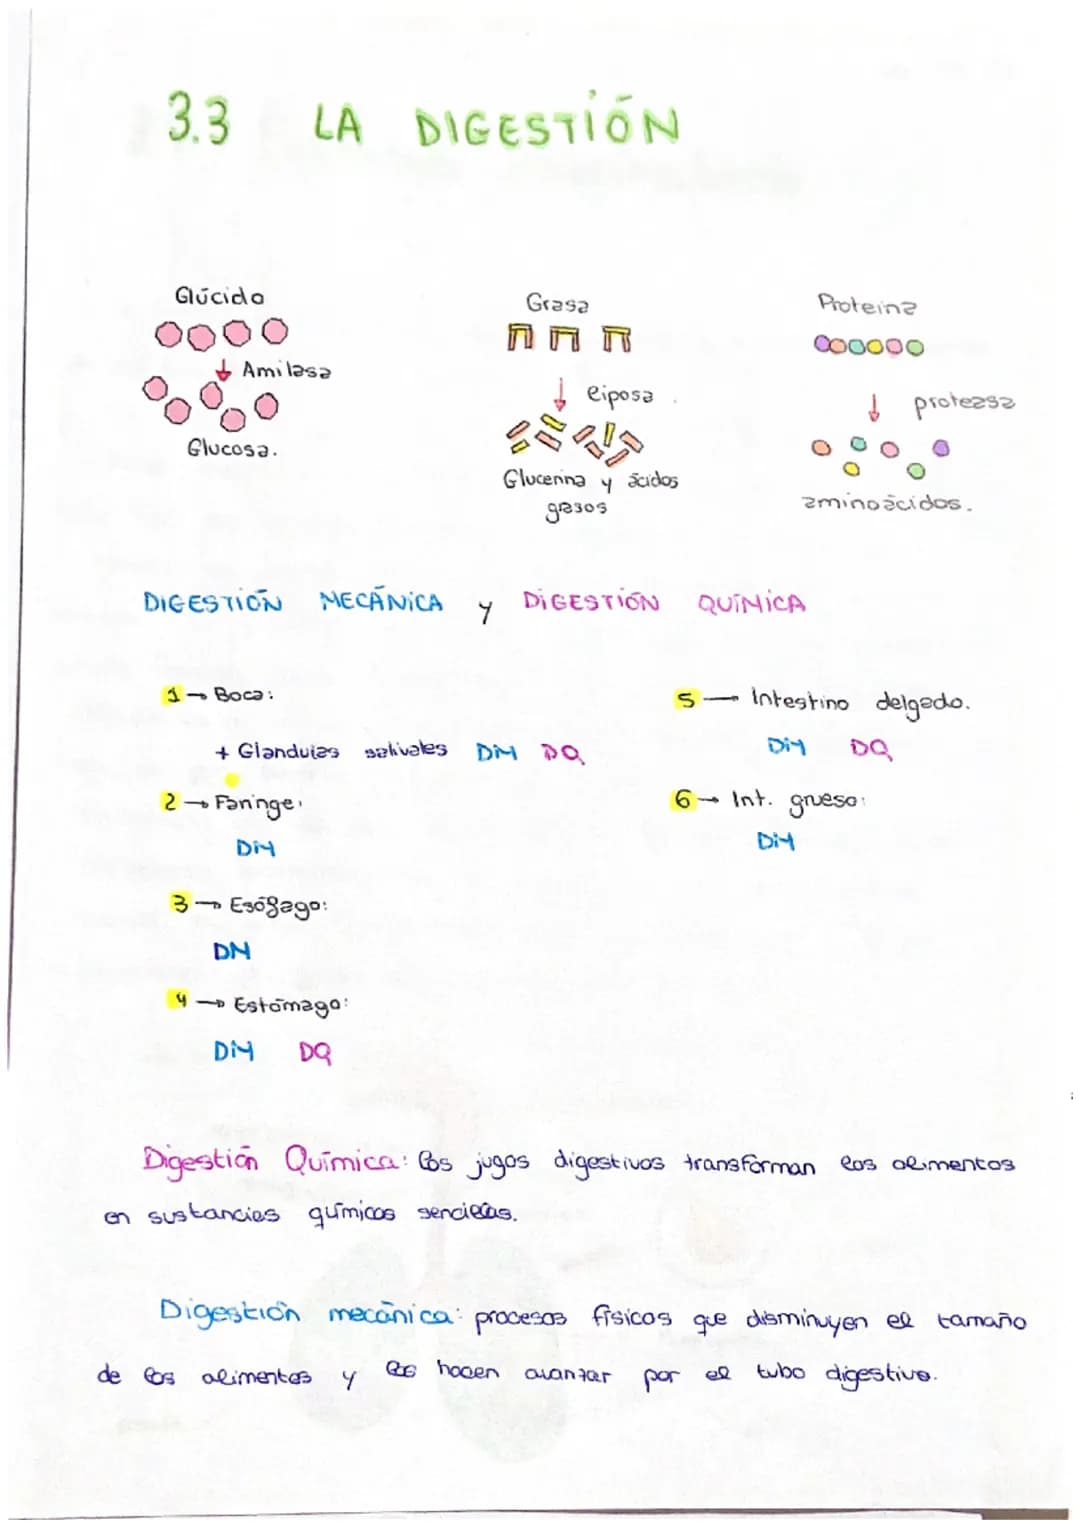 3.3 LA DIGESTIÓN
Glúcido
Amilasa
Glucosa.
Grasa
liposa
Glucerina y ácidos
grasos
Proteina
proteasa
aminoácidos.
DIGESTIÓN MECÁNICA y DIGESTIÓN QUÍMICA
1 → Boca:
+ Glandulas salivales DM DQ
2 → Faringe:
DM
3 → Esófago:
DM
4 → Estómago:
DM DQ
5 → Intestino delgado.
DM DQ
6 → Int. grueso:
DM
Digestión Química: los jugos digestivos transforman los alimentos
en sustancias químicas sencillas.
Digestión mecánica: procesos físicos que disminuyen el tamaño
de los alimentos y los hacen avanzar por el tubo digestivo.